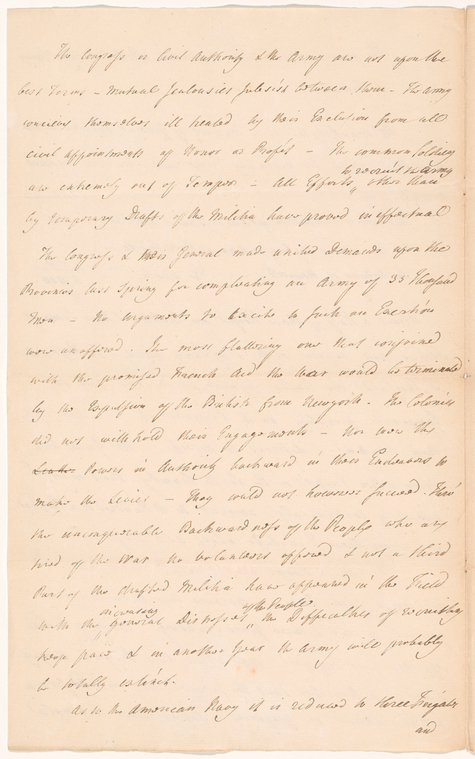 The Congress or Civil Authority & the Army are not upon the
best Terms – Mutual Jealousies subsist between them – The army
conceive themselves ill treated by their Exclusion from all
civil appointments of Honor or Profit – The common Soldiery
to recruit the Army
are extremely out of Temper – All Efforts other than
by temporary Drafts of the Militia have proved ineffectual
The Congress & their General made united Demands upon the
Provinces last Spring for compleating an Army of 35 Thousand
Men – No arguments to excite to such an Exertion
were unoffered. The most flattering one that conjoined
with the promised French Aid the War would be terminated
by the Expulsion of the British from Newyork. The Colonies
did not withhold their Engagements – Nor were the
Powers in Authority backward in their Endeavors to
make the Levies – They could not however succeed. Thro'
the unconquerable Backwardness of the People who are
tired of the War no Volunteers offered & not a third
Part of the drafted Militia have appeared in the Field
increasing of the People
With the general Distress the Difficulties of recruiting
keep pace & in another Year the army will probably
be totally extinct.
As to the American Navy it is reduced to three Frigates
and